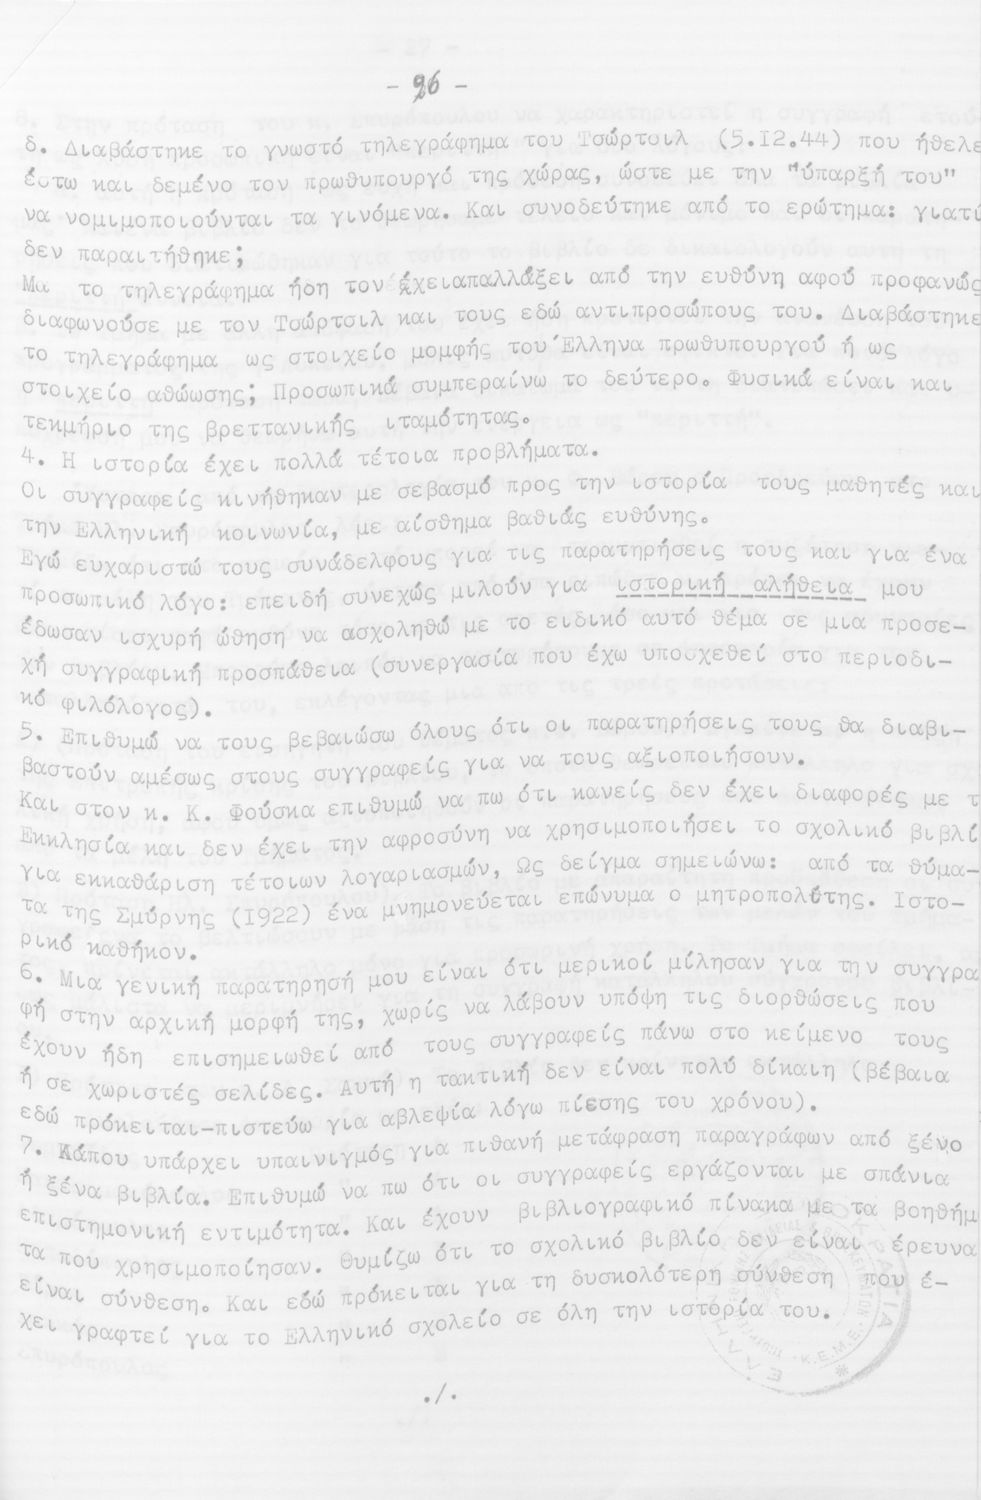 - 26 -
δ. Διαβάστηκε το γνωστό τηλεγράφημα του Τσώρτσιλ (5.12.44) που ήθελε
έστω και δεμένο τον πρωθυπουργό της χώρας, ώστε με την "ύπαρξή του"
να νομιμοποιούνται τα γινόμενα. Και συνοδεύτηκε από το ερώτημα: γιατί
δεν παραιτήθηκε;
Μα το τηλεγράφημα ήδη τον έχει απαλλάξει από την ευθύνη αφού προφανώς
διαφωνούσε με τον Τσώρτσιλ και τους εδώ αντιπροσώπους του. Διαβάστηκε
το τηλεγράφημα ως στοιχείο μομφής του Έλληνα πρωθυπουργού ή ως
στοιχείο αθώωσης; Προσωπικά συμπεραίνω το δεύτερο. Φυσικά είναι και
τεκμήριο της βρεττανικής ιταμότητας.
4. Η ιστορία έχει πολλά τέτοια προβλήματα.
Οι συγγραφείς κινήθηκαν με σεβασμό προς την ιστορία τους μαθητές και
την Ελληνική κοινωνία, με αίσθημα βαθιάς ευθύνης.
Εγώ ευχαριστώ τους συνάδελφους για τις παρατηρήσεις τους και για ένα
προσωπικό λόγο: επειδή συνεχώς μιλούν για ιστορική αλήθεια μου
έδωσαν ισχυρή ώθηση να ασχοληθώ με το ειδικό αυτό θέμα σε μια προσε-
χή συγγραφική προσπάθεια (συνεργασία που έχω υποσχεθεί στο περιοδι-
κό φιλόλογος).
5. Επιθυμώ να τους βεβαιώσω όλους ότι οι παρατηρήσεις τους θα διαβι-
βαστούν αμέσως στους συγγραφείς για να τους αξιοποιήσουν.
Και στον κ. Κ. Φούσκα επιθυμώ να πω ότι κανείς δεν έχει διαφορές με τ
Εκκλησία και δεν έχει την αφροσύνη να χρησιμοποιήσει το σχολικό βιβλί
για εκκαθάριση τέτοιων λογαριασμών, Ως δείγμα σημειώνω: από τα θύμα-
τα της Σμύρνης (1922) ένα μνημονεύεται επώνυμα ο μητροπολίτης. Ιστο-
ρικό καθήκον.
6. Μια γενική παρατήρησή μου είναι ότι μερικοί μίλησαν για την συγγρα
φή στην αρχική μορφή της, χωρίς να λάβουν υπόψη τις διορθώσεις που
έχουν ήδη επισημειωθεί από τους συγγραφείς πάνω στο κείμενο τους
ή σε χωριστές σελίδες. Αυτή η τακτική δεν είναι πολύ δίκαιη (βέβαια
εδώ πρόκειται-πιστεύω για αβλεψία λόγω πίεσης του χρόνου).
7. Κάπου υπάρχει υπαινιγμός για πιθανή μετάφραση παραγράφων από ξένο
ή ξένα βιβλία. Επιθυμώ να πω ότι οι συγγραφείς εργάζονται με σπάνια
επιστημονική εντιμότητα. Και έχουν βιβλιογραφικό πίνακα με τα βοηθήμ
τα που χρησιμοποίησαν. Θυμίζω ότι το σχολικό βιβλίο δεν είναι έρευνα
είναι σύνθεση. Και εδώ πρόκειται για τη δυσκολότερη σύνθεση που έ-
χει γραφτεί για το Ελληνικό σχολείο σε όλη την ιστορία του.
./.
Κ.Ε.Μ.Ε.